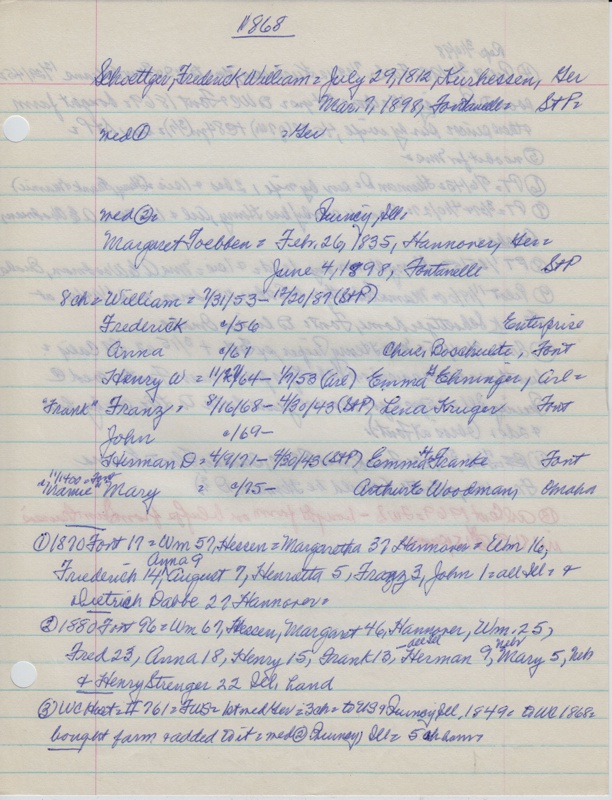 #868
Schoettger, Frederick William = July 29, 1812, Kurhessen, Ger
Mar. 7, 1898, Fontanelle = StP =
med ① = Ger
med ② = Quincy, Ill =
Margaret Toebben = Febr. 26, 1835, Hannover, Ger =
June 4, 1898, Fontanelle StP
8 ch = William = 7/31/53 - 12/20/87 (StP)
Frederick c/56 Enterprise
Anna c/61 Chris Boschulte, Font
Henry W = 64 - 1/7/53 (Arl) Emma Ehninger, Arl =
"Frank" Franz = 8/16/68 - 4/30/43 (StP) Lena Kruger Font
John c/69 -
Herman D = 4/9/71 - 4/30/43 (StP) Emma H Franke Font
"Mamie" Mary = c/75 - Arthur E Woodman, Omaha
① 1870 Font 17 = Wm 57, Hessen = Margaretha 37 Hannover = Wm 16,
Anna 9
Friederich 14, August 7, Henretta 5, Franz 3, John 1 = all Ill = +
Dietrich Dabbe 27 Hannover =
② 1880 Font 96 = Wm 67, Hessen, Margaret 46, Hannover, Wm. 25,
Fred 23, Anna 18, Henry 15, Frank 13, - all Ill - Herman 9, Nebr Mary 5, Neb
& Henry Strenger 22 Ill, hand
③ WC Hist = II 761 = FWS = 1st med Ger = 3 ch = to US + Quincy Ill, 1849 = to WC 1868 =
bought farm + added to it = med ② Quincy, Ill = 5 ch